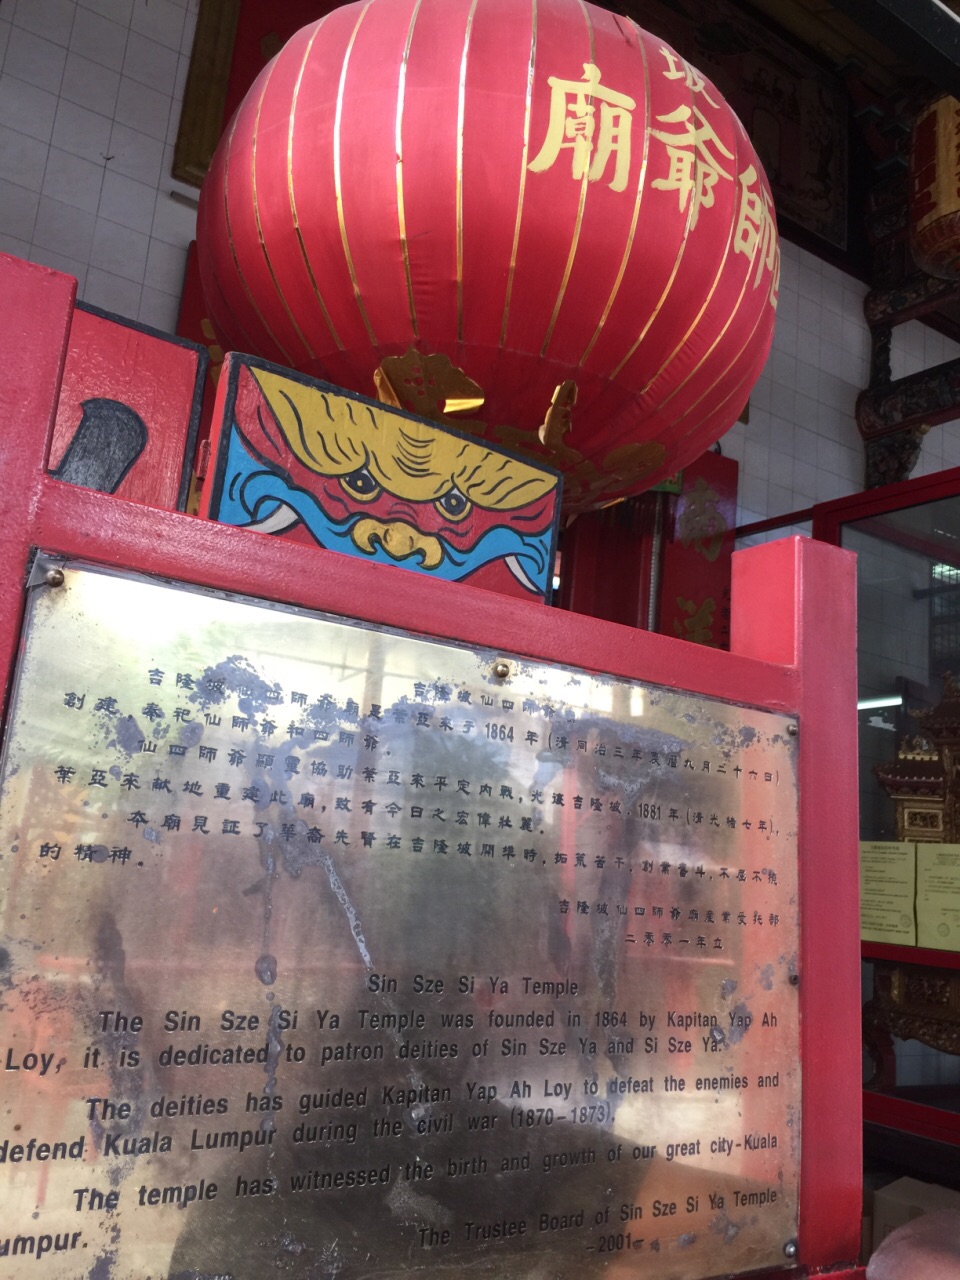 坡
廟 爺 師
南
吉隆坡仙四師爺
吉隆坡仙四師爺廟是葉亞來于1864年(清同治三年農曆九月二十六日)
創建,奉祀仙師爺和四師爺.
仙四師爺顯靈協助葉亞來平定內戰,光復吉隆坡.1881年(清光緒七年),
葉亞來献地重建此廟,致有今日之宏偉壯麗.
本廟見証了華裔先賢在吉隆坡開埠時,拓荒若干,創業奮斗,不屈不撓
的精神.
吉隆坡仙四師爺廟產業受托部
二零零一年立
Sin Sze Si Ya Temple
The Sin Sze Si Ya Temple was founded in 1864 by Kapitan Yap Ah
Loy, it is dedicated to patron deities of Sin Sze Ya and Si Sze Ya.
The deities has guided Kapitan Yap Ah Loy to defeat the enemies and
defend Kuala Lumpur during the civil war (1870-1873).
The temple has witnessed the birth and growth of our great city-Kuala
umpur.
The Trustee Board of Sin Sze Si Ya Temple
-2001-